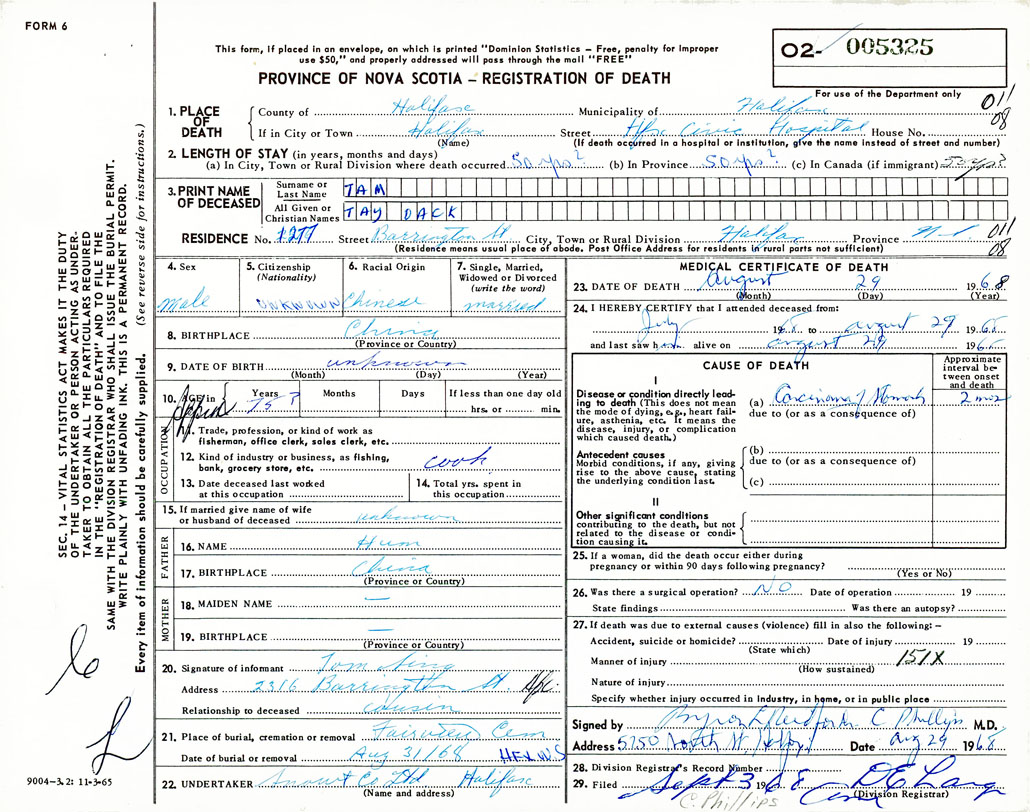 FORM 6
This form, if placed in an envelope, on which is printed "Dominion Statistics – Free, penalty for improper
use $50," and properly addressed will pass through the mail "FREE"
PROVINCE OF NOVA SCOTIA – REGISTRATION OF DEATH
02- 005325
For use of the Department only
011
08
1. PLACE OF DEATH
County of Halifax Municipality of Halifax
If in City or Town Halifax Street Hfx Civic Hospital House No.
(Name) (If death occurred in a hospital or institution, give the name instead of street and number)
2. LENGTH OF STAY (in years, months and days)
(a) In City, Town or Rural Division where death occurred 50 yrs? (b) In Province 50 yrs? (c) In Canada (if immigrant) 50 yrs?
3. PRINT NAME OF DECEASED
Surname or Last Name TAM
All Given or Christian Names TAY DACK
RESIDENCE No. 1277 Street Barrington St City, Town or Rural Division Halifax Province N.S.
(Residence means usual place of abode. Post Office Address for residents in rural parts not sufficient)
011
08
4. Sex
Male
5. Citizenship
(Nationality)
UNKNOWN
6. Racial Origin
Chinese
7. Single, Married,
Widowed or Divorced
(write the word)
married
8. BIRTHPLACE China
(Province or Country)
9. DATE OF BIRTH unknown
(Month) (Day) (Year)
10. AGE in Years 75 ? Months Days If less than one day old
hrs. or min.
OCCUPATION
11. Trade, profession, or kind of work as
fisherman, office clerk, sales clerk, etc.
12. Kind of industry or business, as fishing, cook
bank, grocery store, etc.
13. Date deceased last worked
at this occupation
14. Total yrs. spent in
this occupation
15. If married give name of wife
or husband of deceased unknown
FATHER
16. NAME Hum
17. BIRTHPLACE China
(Province or Country)
MOTHER
18. MAIDEN NAME —
19. BIRTHPLACE —
(Province or Country)
20. Signature of informant Tom Sing
Address 2316 Barrington St. Hfx.
Relationship to deceased cousin
21. Place of burial, cremation or removal Fairview Cem
Date of burial or removal Aug 31/68 HFX. N.S
22. UNDERTAKER Snow & Co Ltd Halifax
(Name and address)
MEDICAL CERTIFICATE OF DEATH
23. DATE OF DEATH August 29 1968
(Month) (Day) (Year)
24. I HEREBY CERTIFY that I attended deceased from:
July 1968 to August 29 1968
and last saw him alive on August 29 1968
CAUSE OF DEATH
Approximate
interval be-
tween onset
and death
I
Disease or condition directly lead-
ing to death (This does not mean
the mode of dying, e.g., heart fail-
ure, asthenia, etc. It means the
disease, injury, or complication
which caused death.)
(a) Carcinoma of Stomach 2 mos
due to (or as a consequence of)
Antecedent causes
Morbid conditions, if any, giving
rise to the above cause, stating
the underlying condition last.
(b)
due to (or as a consequence of)
(c)
II
Other significant conditions
contributing to the death, but not
related to the disease or condi-
tion causing it.
25. If a woman, did the death occur either during
pregnancy or within 90 days following pregnancy?
(Yes or No)
26. Was there a surgical operation? NO Date of operation 19
State findings Was there an autopsy?
27. If death was due to external causes (violence) fill in also the following: –
Accident, suicide or homicide? Date of injury 19
(State which)
Manner of injury 151X
(How sustained)
Nature of injury
Specify whether injury occurred in Industry, in home, or in public place
Signed by C Phillips M.D.
Address 5750 North St Date Aug 29 1968
28. Division Registrar's Record Number
29. Filed Sept 3 1968 D E Lang
(Division Registrar)
C Phillips
SEC. 14 – VITAL STATISTICS ACT MAKES IT THE DUTY
OF THE UNDERTAKER OR PERSON ACTING AS UNDER-
TAKER TO OBTAIN ALL THE PARTICULARS REQUIRED
IN THE "REGISTRATION OF DEATH" AND TO FILE THE
SAME WITH THE DIVISION REGISTRAR WHO SHALL ISSUE THE BURIAL PERMIT.
WRITE PLAINLY WITH UNFADING INK. THIS IS A PERMANENT RECORD.
Every item of information should be carefully supplied. (See reverse side for instructions.)
9004-3.2: 11-3-65